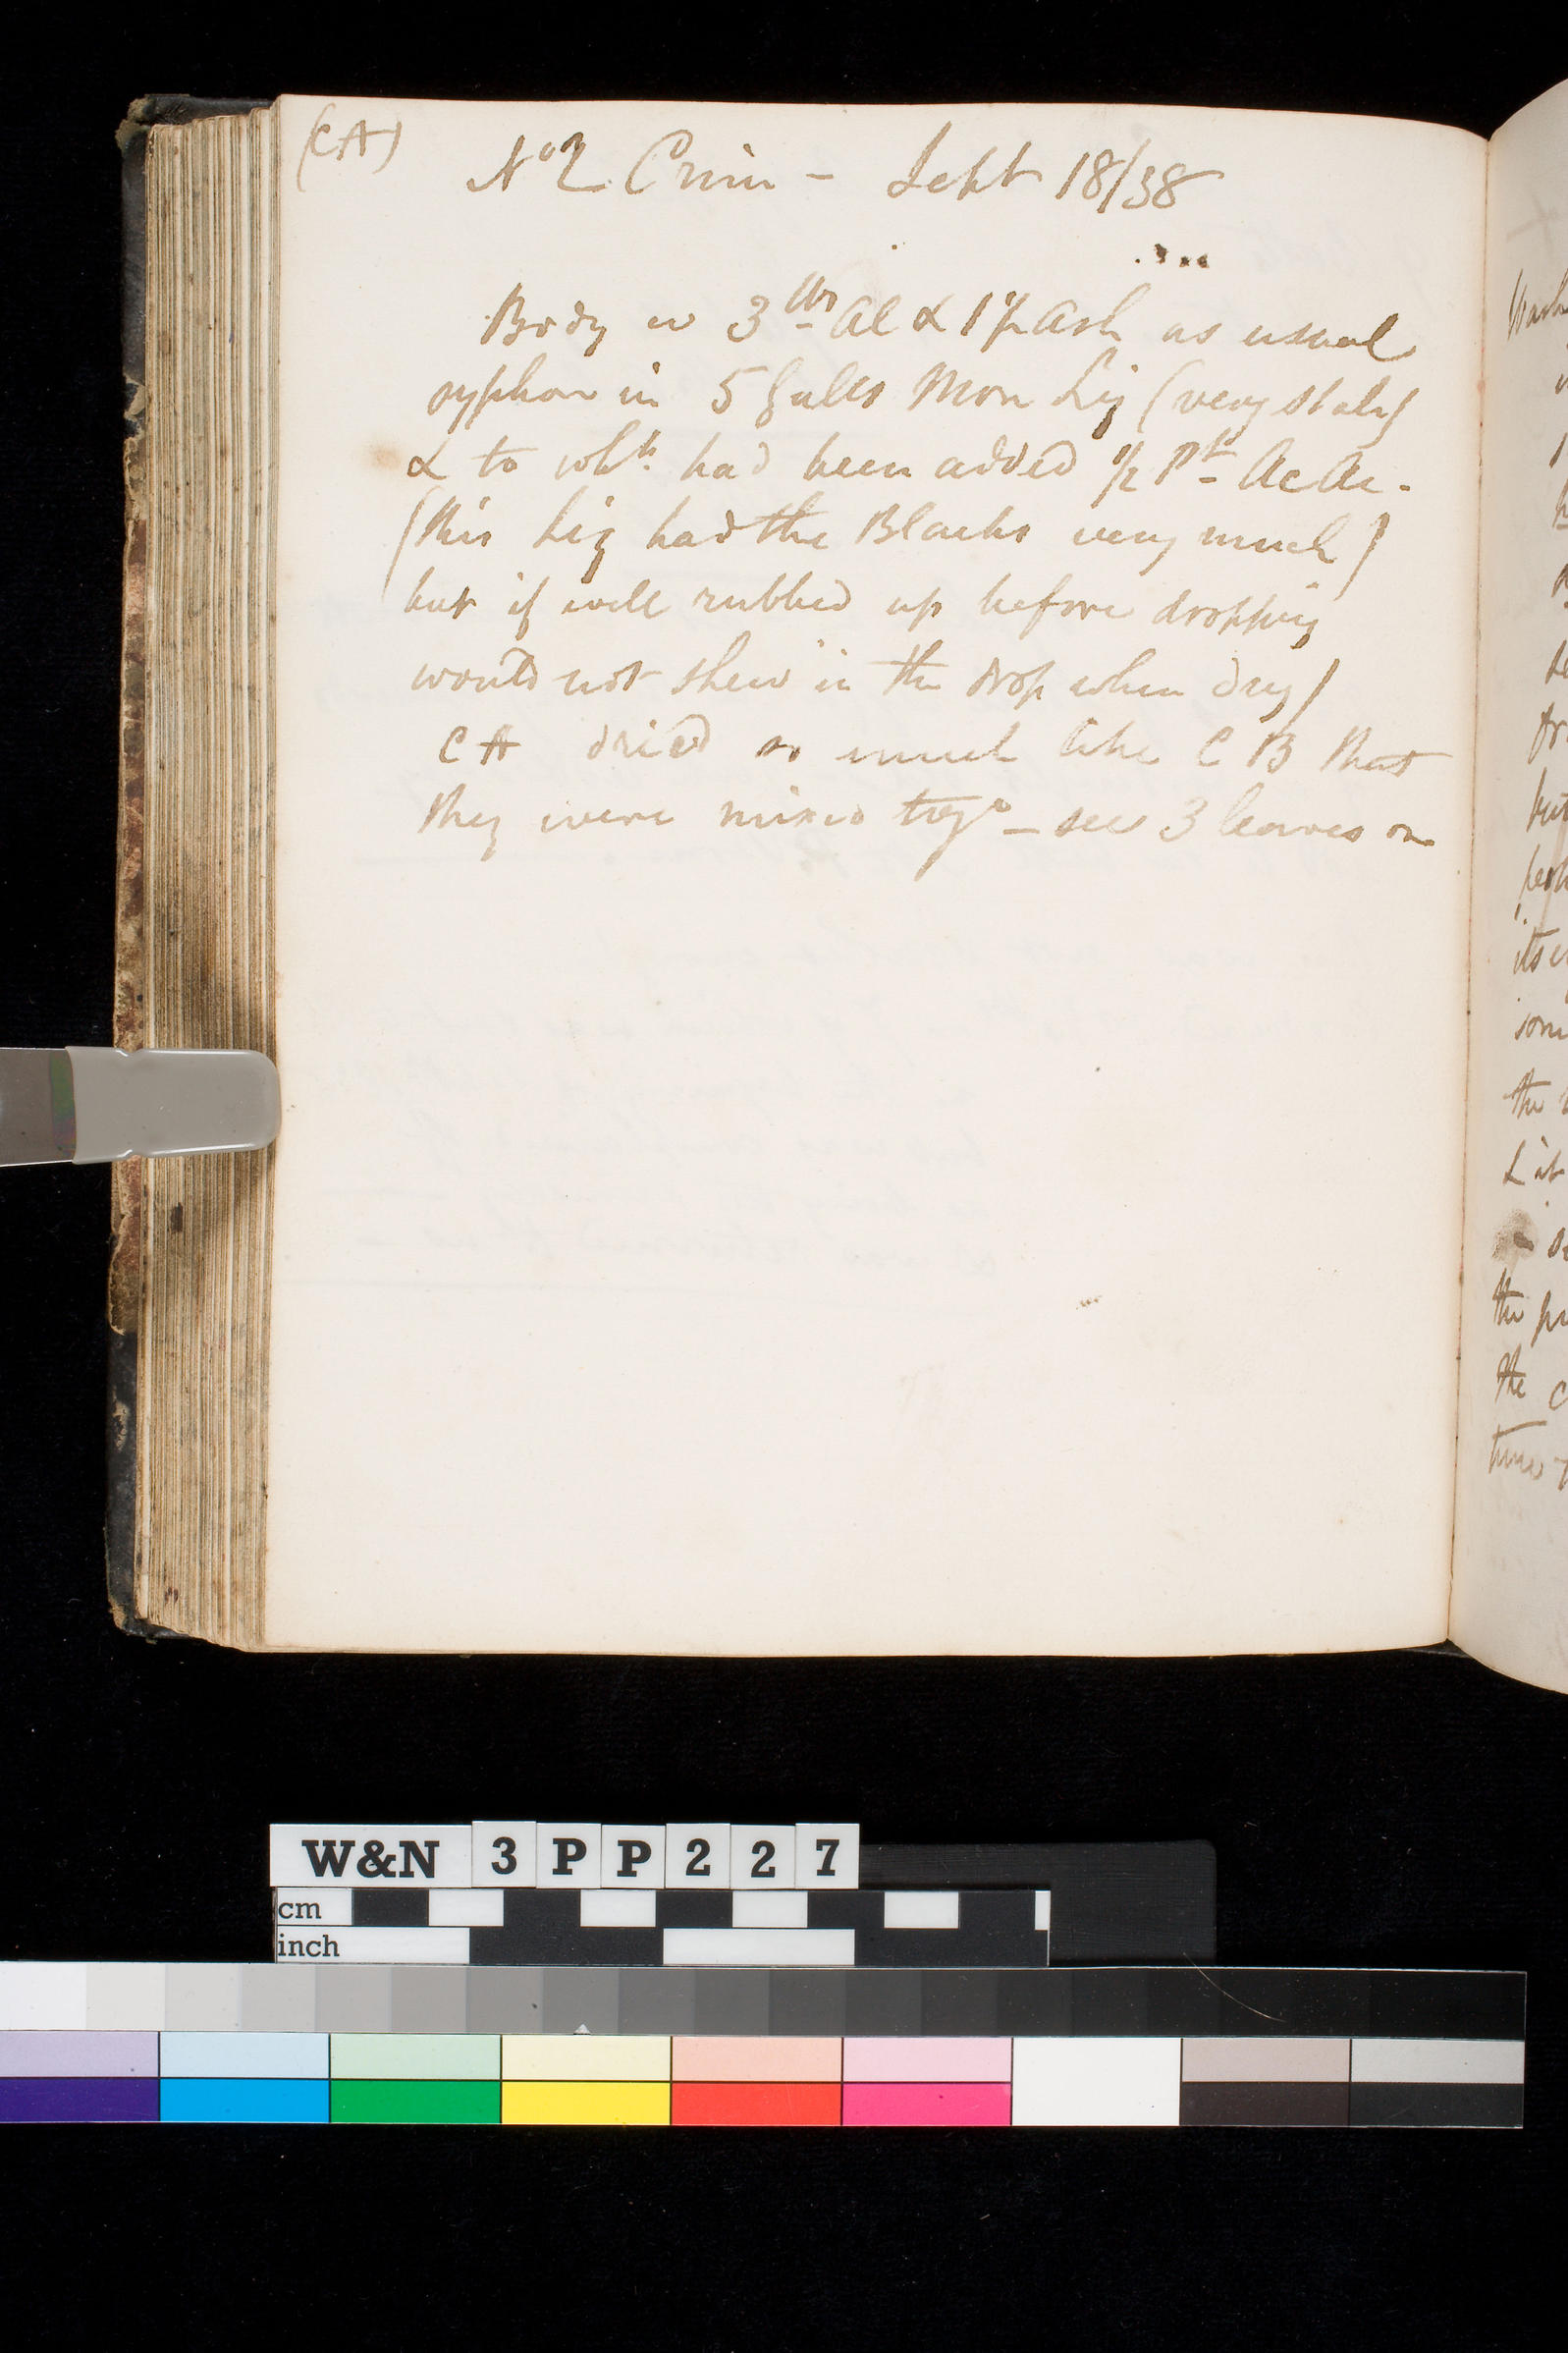 (CA)
No 2 Crim - Sept 18/38
Body w 3 lbs Al & 1 1/2 Ash as usual
syphon in 5 Galls Mon Liq (very stale)
& to whh. had been added 1/2 Pt Ac Ac.
(this Liq had the Blacks very much)
but if well rubbed up before dropping
would not shew in the drop when dry)
CA dried so much like CB that
they were mixed togr - see 3 leaves on
the
the
the
W&N 3PP227
cm
inch